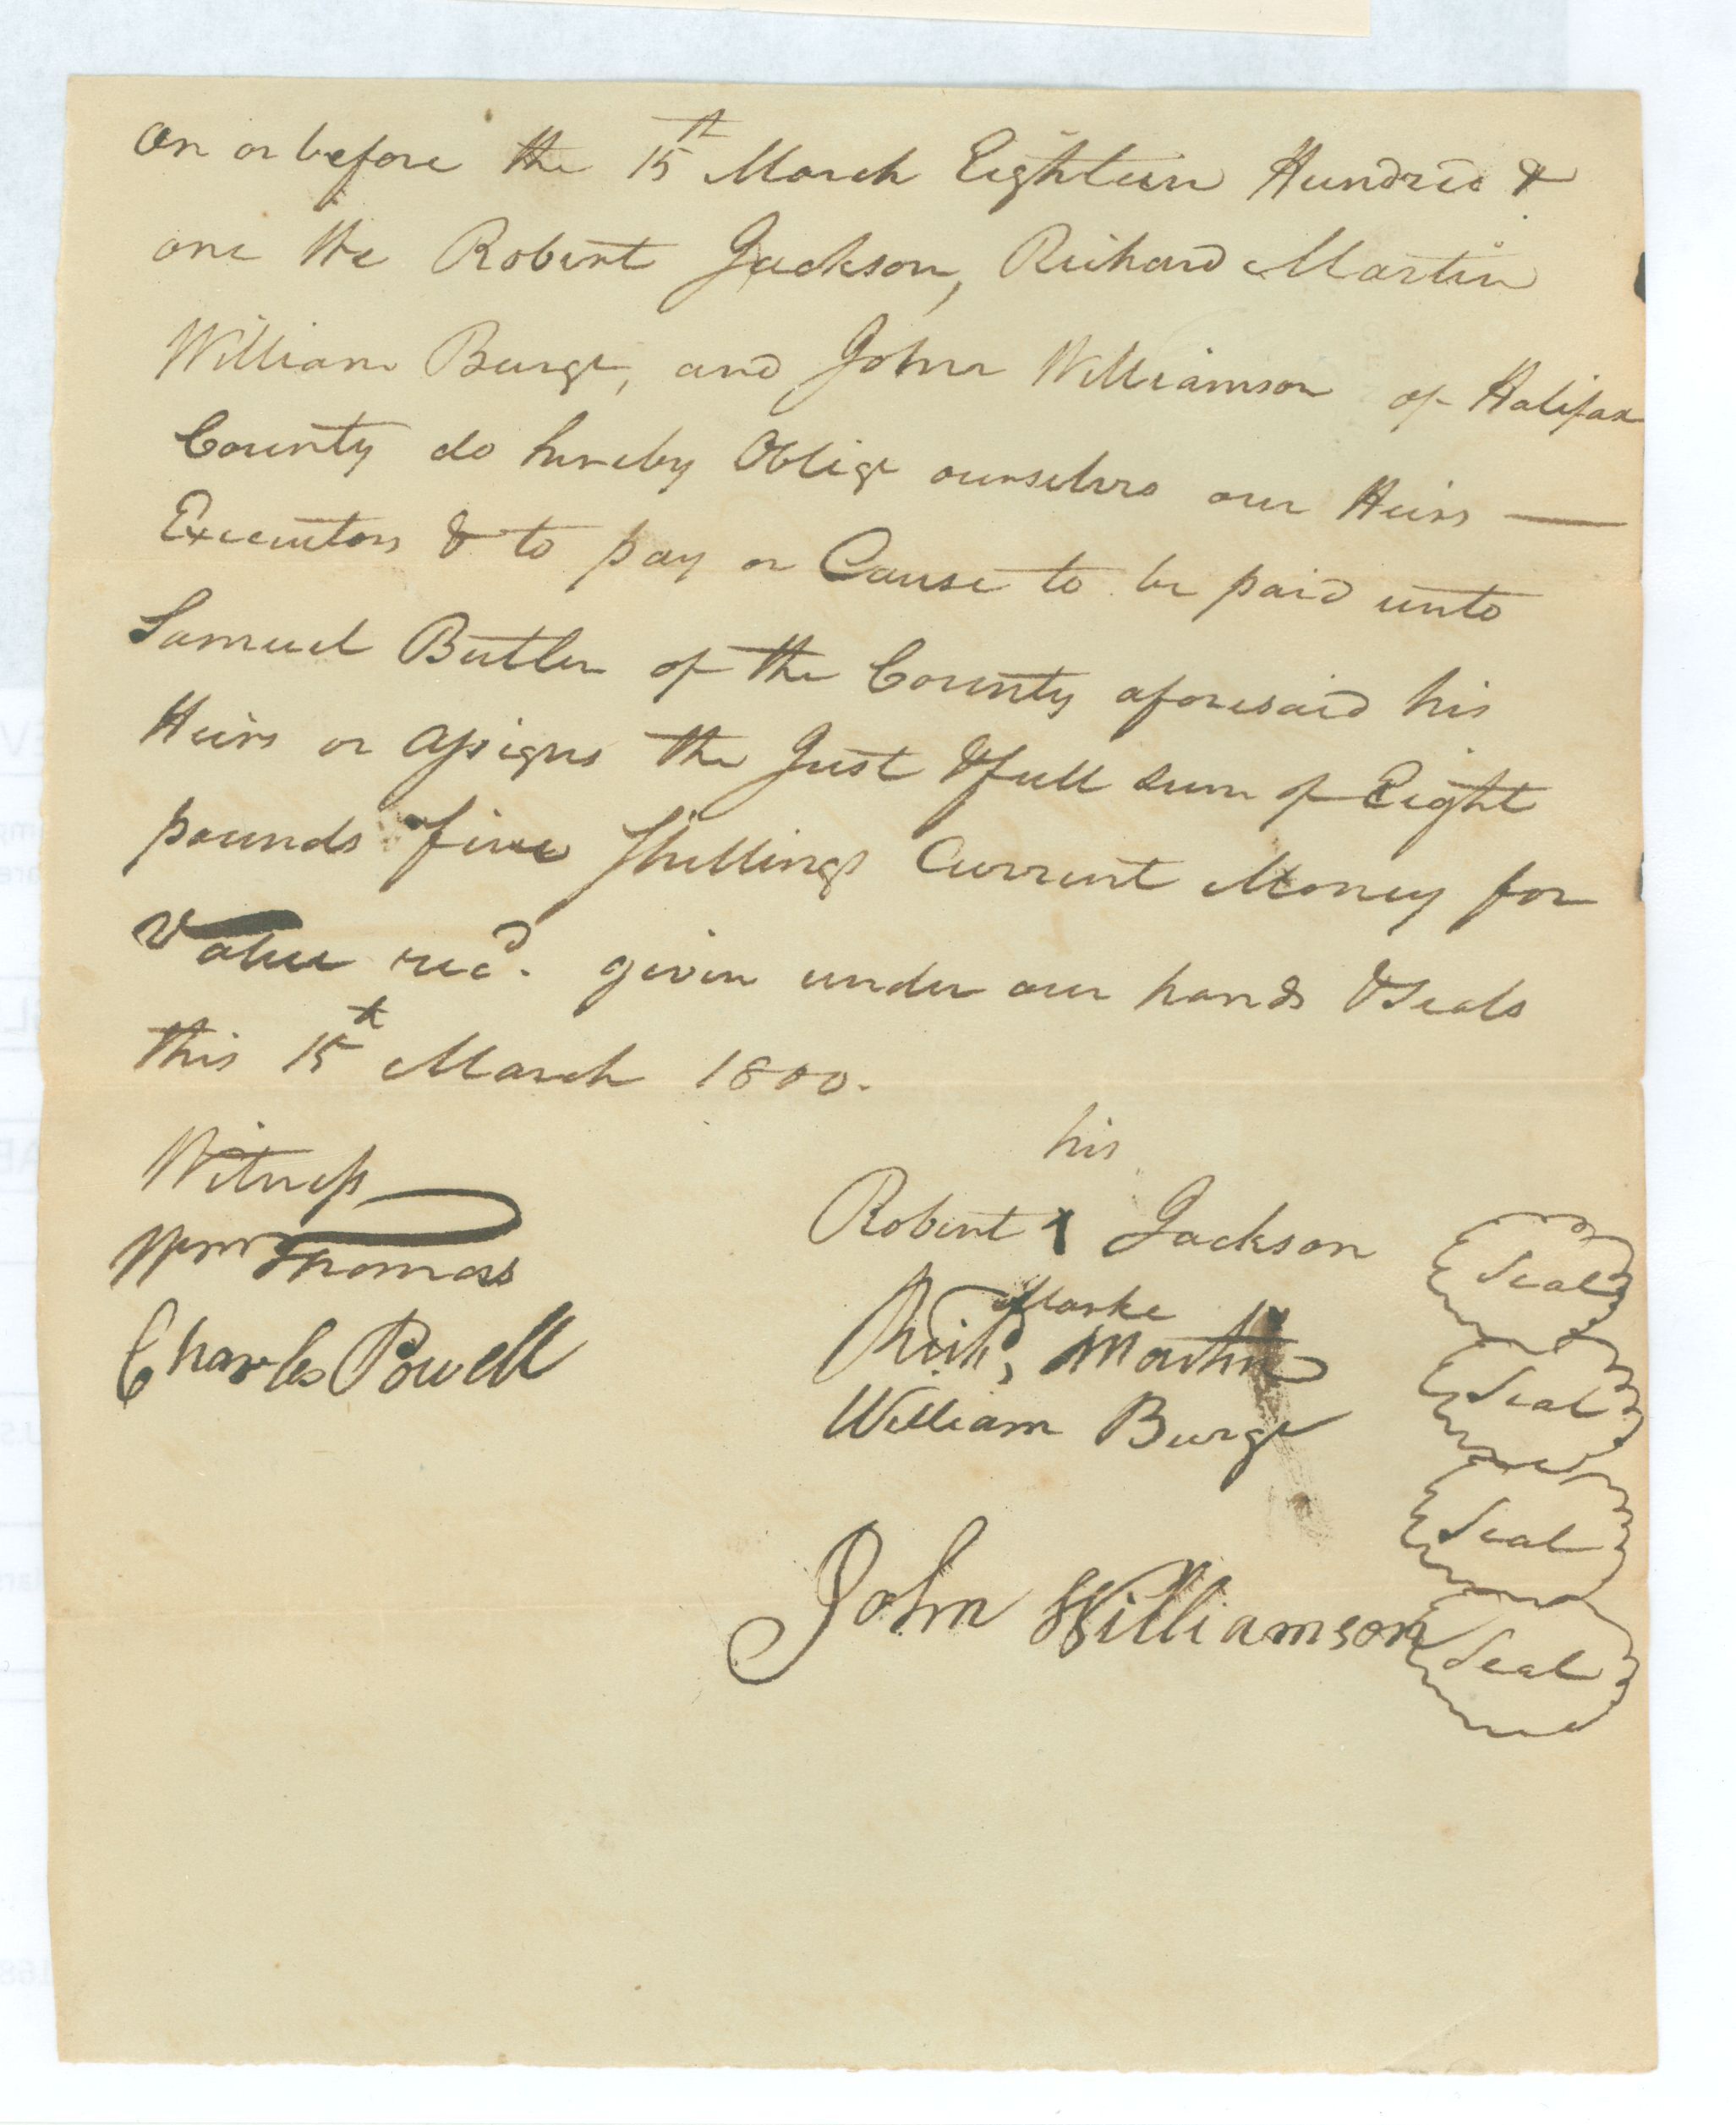 On or before the 15th March Eighteen Hundred &
one We Robert Jackson, Richard Martin
William Burge, and John Williamson of Halifax
County do hereby Oblige ourselves our Heirs —
Executors & to pay or Cause to be paid unto
Samuel Butler of the County aforesaid his
Heirs or assigns the Just & full sum of Eight
pounds five Shillings Current Money for
Value recd. given under our hands & Seals
this 15th March 1800.
his
Witness
Robert X Jackson Seal
Wm Thomas
marke
Charles Powell
Richd, Martin Seal
William Burge Seal
John Williamson Seal